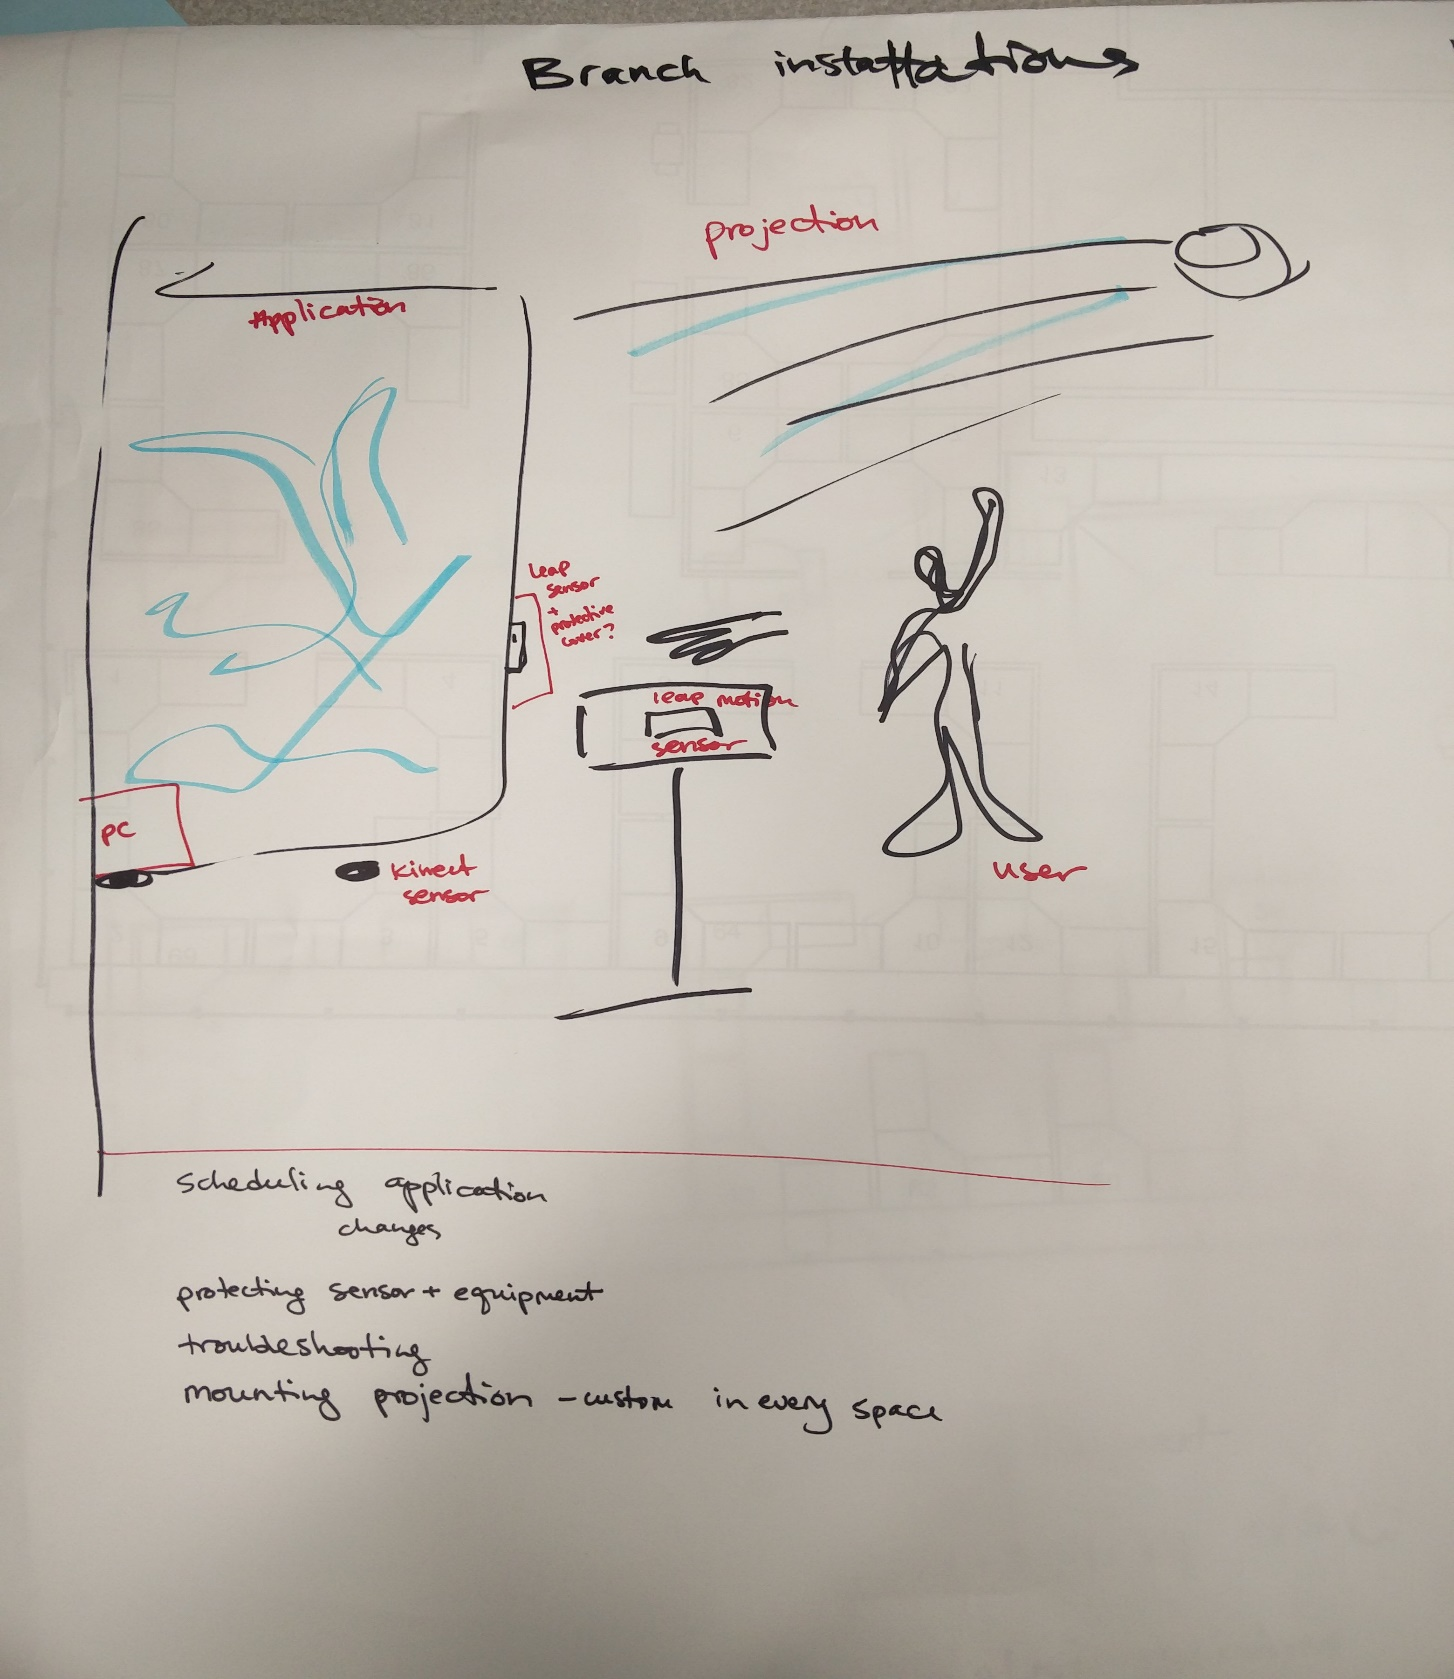 Branch installations
projection
Application
leap
sensor
+
protective
cover?
leap motion
sensor
PC
Kinect
sensor
user
scheduling application
changes
protecting sensor + equipment
troubleshooting
mounting projection – custom in every space